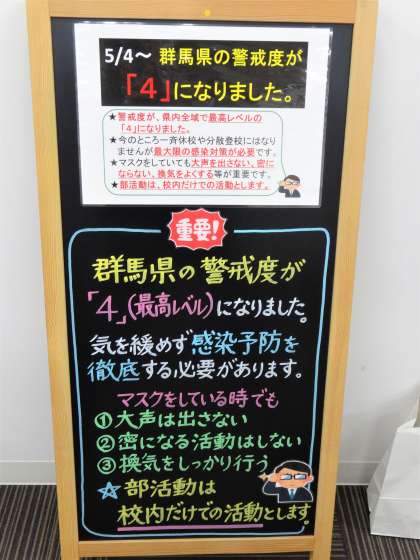 5/4～ 群馬県の警戒度が
「４」になりました。
★警戒度が、県内全域で最高レベルの
「４」になりました。
★今のところ一斉休校や分散登校にはなり
ませんが最大限の感染対策が必要です。
★マスクをしていても大声を出さない、密に
ならない、換気をよくする等が重要です。
★部活動は、校内だけでの活動とします。
重要!
群馬県の警戒度が
「4」(最高レベル)になりました。
気を緩めず感染予防を
徹底する必要があります。
マスクをしている時でも
①大声は出さない
②密になる活動はしない
③換気をしっかり行う
☆部活動は
校内だけでの活動とします。